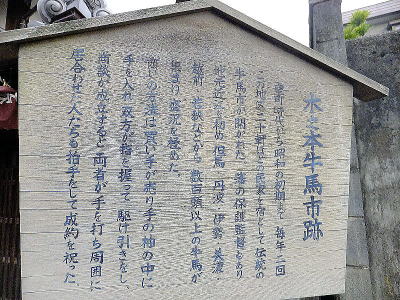 木之本牛馬市跡
室町時代から昭和の初期まで毎年二回
この地区二十軒ほどの民家を宿として伝統の
牛馬市が開かれた 藩の保護監督もあり
地元近江を初め但馬・丹波・伊勢・美濃・
越前・若狭などから数百頭以上の牛馬が
集まり盛況を極めた
商いの方法は買い手が売り手の袖の中に
手を入れ双方が指を握って駆け引きをし、
商談が成立すると両者が手を打ち周囲に
居合わせた人たちも拍手をして成約を祝った